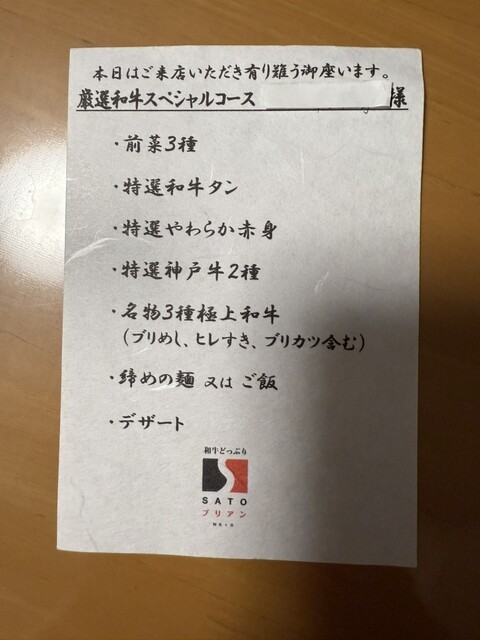 本日はご来店いただき有り難う御座います。
厳選和牛スペシャルコース 様
・前菜3種
・特選和牛タン
・特選やわらか赤身
・特選神戸牛2種
・名物3種極上和牛
(ブリめし、ヒレすき、ブリカツ含む)
・締めの麺 又は ご飯
・デザート
和牛どっぷり
SATO
ブリアン